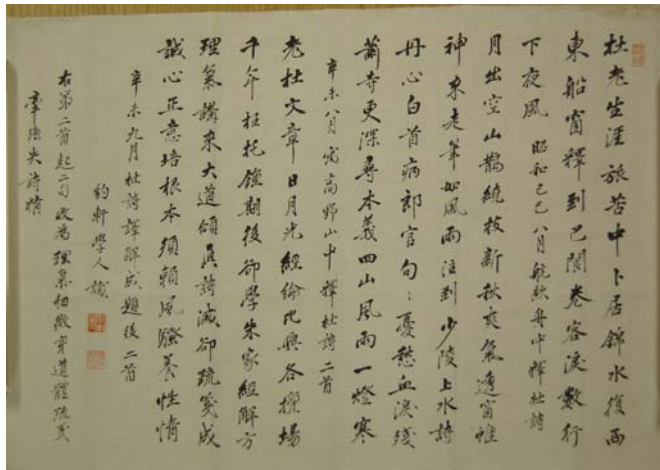 杜老生涯旅苦中卜居錦水復西
東船窗釋到巴閬卷客淚數行
下夜風 昭和己巳八月航欧舟中釋杜詩
月出空山鵲繞枝新秋爽氣透窗帷
神來走筆如風雨注到少陵上水詩
丹心白首病郎官句〻憂愁血淚殘
蕭寺更深尋本義四山風雨一燈寒
辛未八月宿高野山中釋杜詩二首
老杜文章日月光經綸比興各擅場
千年枉托鍾期後卻學朱家細解方
理氣講來大道傾真詩滅卻疏箋成
誠心正意培根本須賴風騷養性情
辛未九月杜詩譯解成題後二首
豹軒學人識
右第二首起二句改為理氣初微穿道體疏箋
牽強失詩情